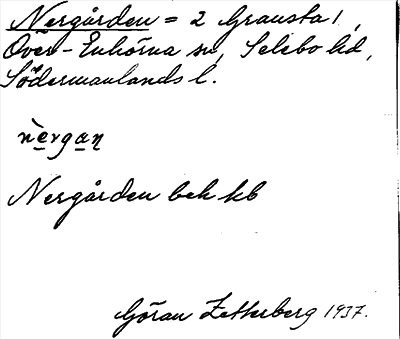 Nergården = 2 Grausta 1,
Över-Enhörna sn, Selebo hd,
Södermanlands l.
nè̱rga̱ṉ
Nergården bek kb
Göran Zetterberg 1937.